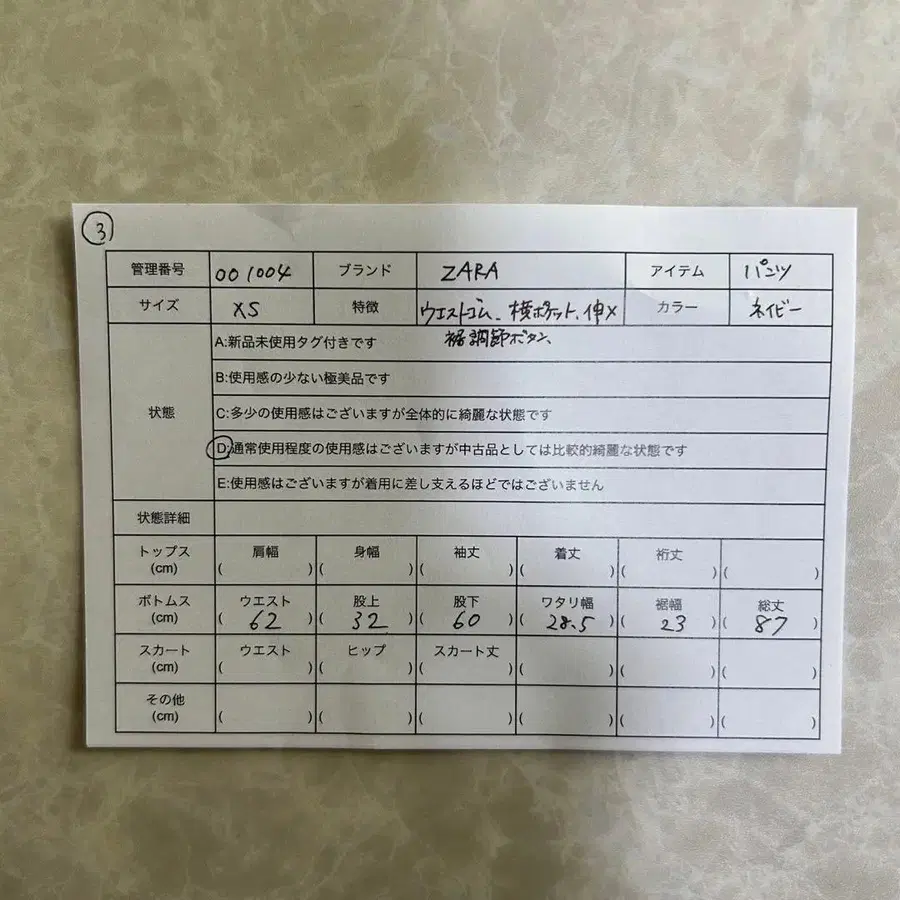 ③
管理番号 001004 ブランド ZARA アイテム パンツ
サイズ XS 特徴 ウエストゴム、横ポケット、伸× カラー ネイビー
裾調節ボタン
状態
A:新品未使用タグ付きです
B:使用感の少ない極美品です
C:多少の使用感はございますが全体的に綺麗な状態です
D:通常使用程度の使用感はございますが中古品としては比較的綺麗な状態です
E:使用感はございますが着用に差し支えるほどではございません
状態詳細
トップス 肩幅 身幅 袖丈 着丈 裄丈
(cm) ( ) ( ) ( ) ( ) ( ) ( )
ボトムス ウエスト 股上 股下 ワタリ幅 裾幅 総丈
(cm) ( 62 ) ( 32 ) ( 60 ) ( 28.5 ) ( 23 ) ( 87 )
スカート ウエスト ヒップ スカート丈
(cm) ( ) ( ) ( ) ( ) ( ) ( )
その他
(cm) ( ) ( ) ( ) ( ) ( ) ( )